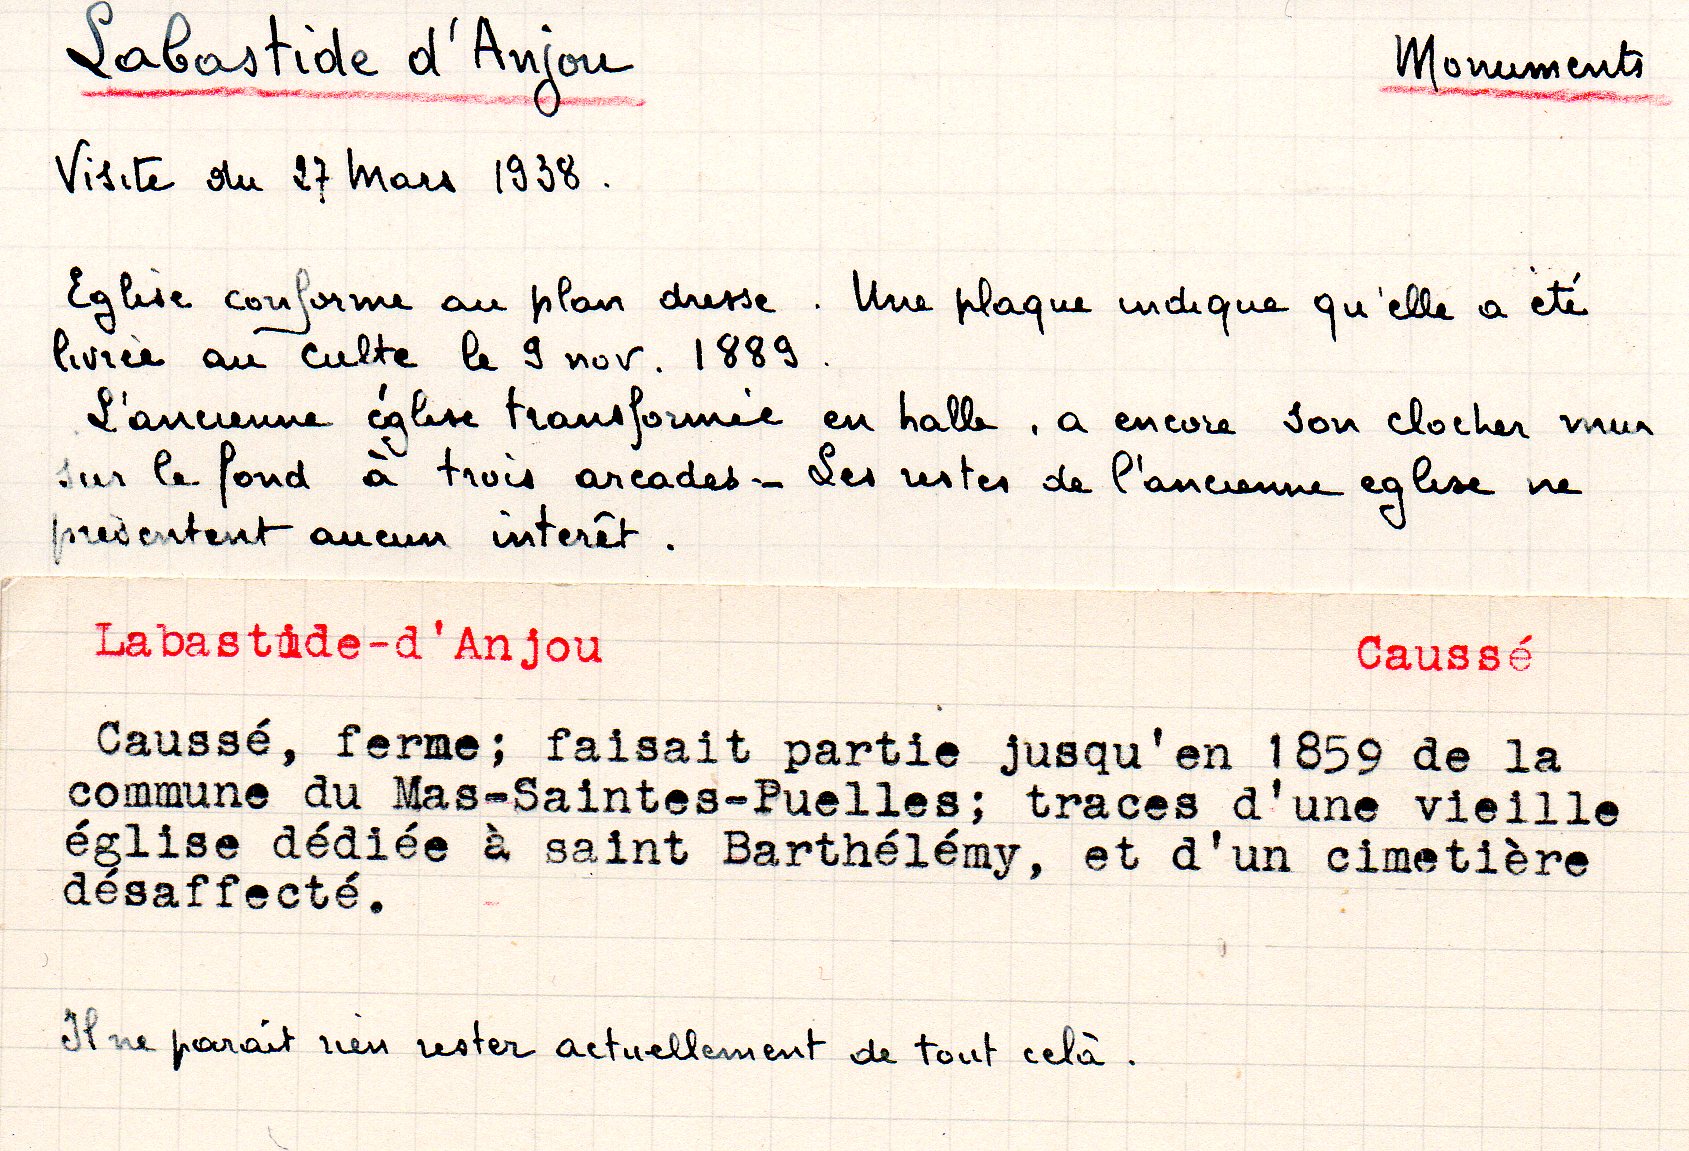 Labastide d'Anjou
Monuments
Visite du 27 Mars 1938.
Eglise conforme au plan dresse. Une plaque indique qu'elle a été
livrée au culte le 9 nov. 1889.
L'ancienne église transformée en halle, a encore son clocher mur
sur le fond à trois arcades - Les restes de l'ancienne eglise ne
présentent aucun interêt.
Labastide-d'Anjou
Caussé
Caussé, ferme; faisait partie jusqu'en 1859 de la
commune du Mas-Saintes-Puelles; traces d'une vieille
église dédiée à saint Barthélémy, et d'un cimetière
désaffecté.
Il ne parait rien rester actuellement de tout celà.